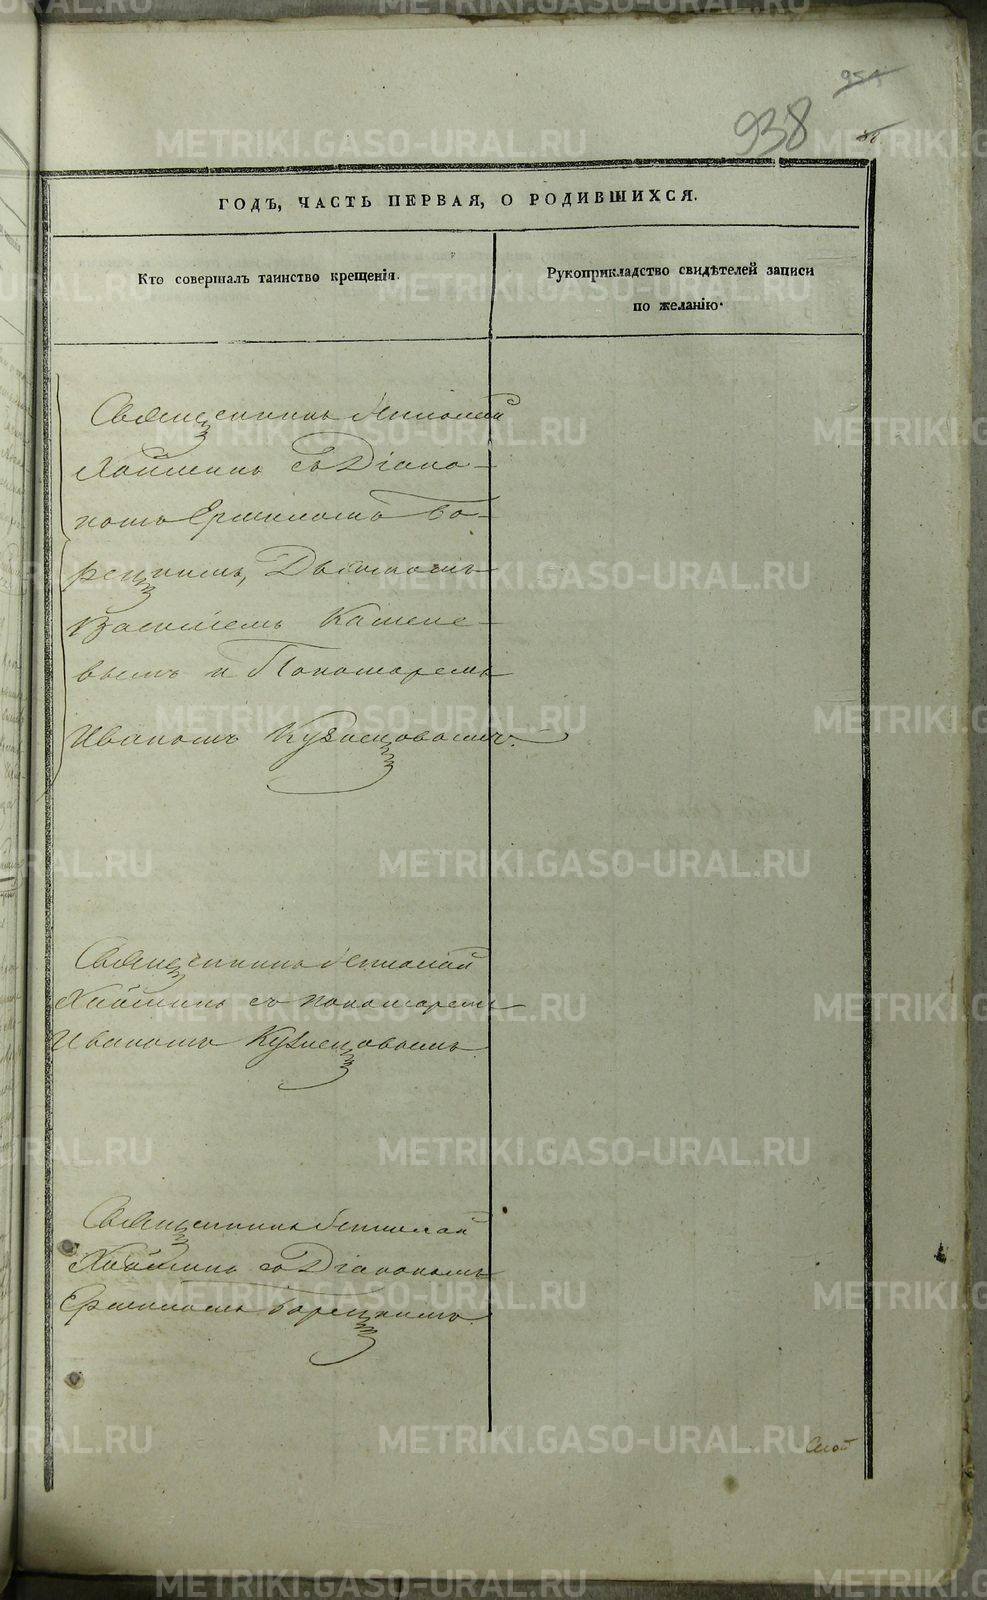 954
938
ГОДЪ, ЧАСТЬ ПЕРВАЯ, О РОДИВШИХСЯ.
Кто совершалъ таинство крещенія.
Рукоприкладство свидѣтелей записи
по желанію.
Священникъ Николай
съ Діако-
номъ Ермиломъ Бо-
рецкимъ, Дьячкомъ
Василіемъ Камене-
вымъ и Пономаремъ
Иваномъ Кузнецовымъ.
Священникъ Николай
съ пономаремъ
Иваномъ Кузнецовымъ.
Священникъ Николай
со Діакономъ
Ермиломъ Борецкимъ.
METRIKI.GASO-URAL.RU